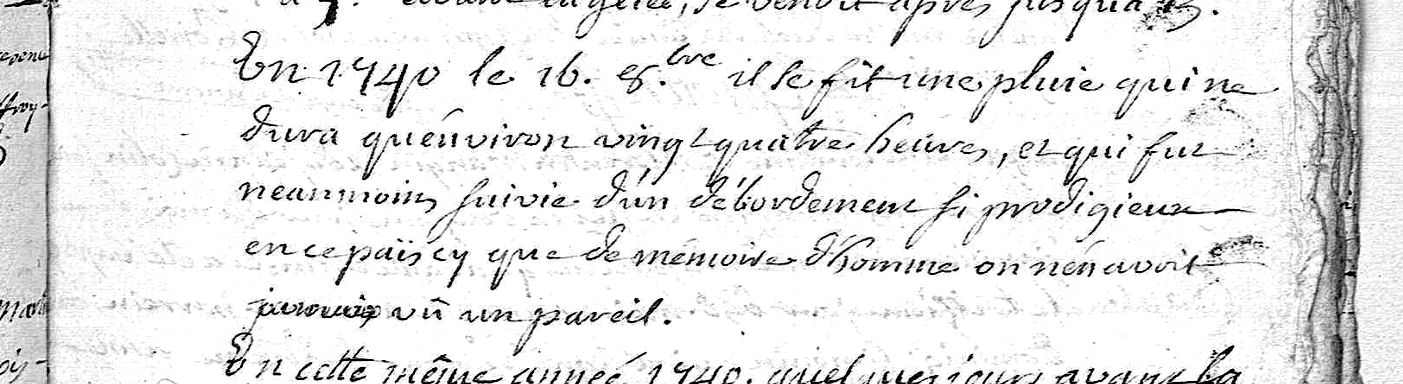 avant la gelée, se vendit après jusqu'a 15.
En 1740 le 16. 8.bre il se fit une pluie qui ne
dura qu'énviron vingt quatre heures, et qui fut
neanmoins suivie d'ún débordement si prodigieux
en ce païs cy que de mémoire d'homme on n'én avoit
jamais vû un pareil.
En cette même année 1740. quelques jours avant la